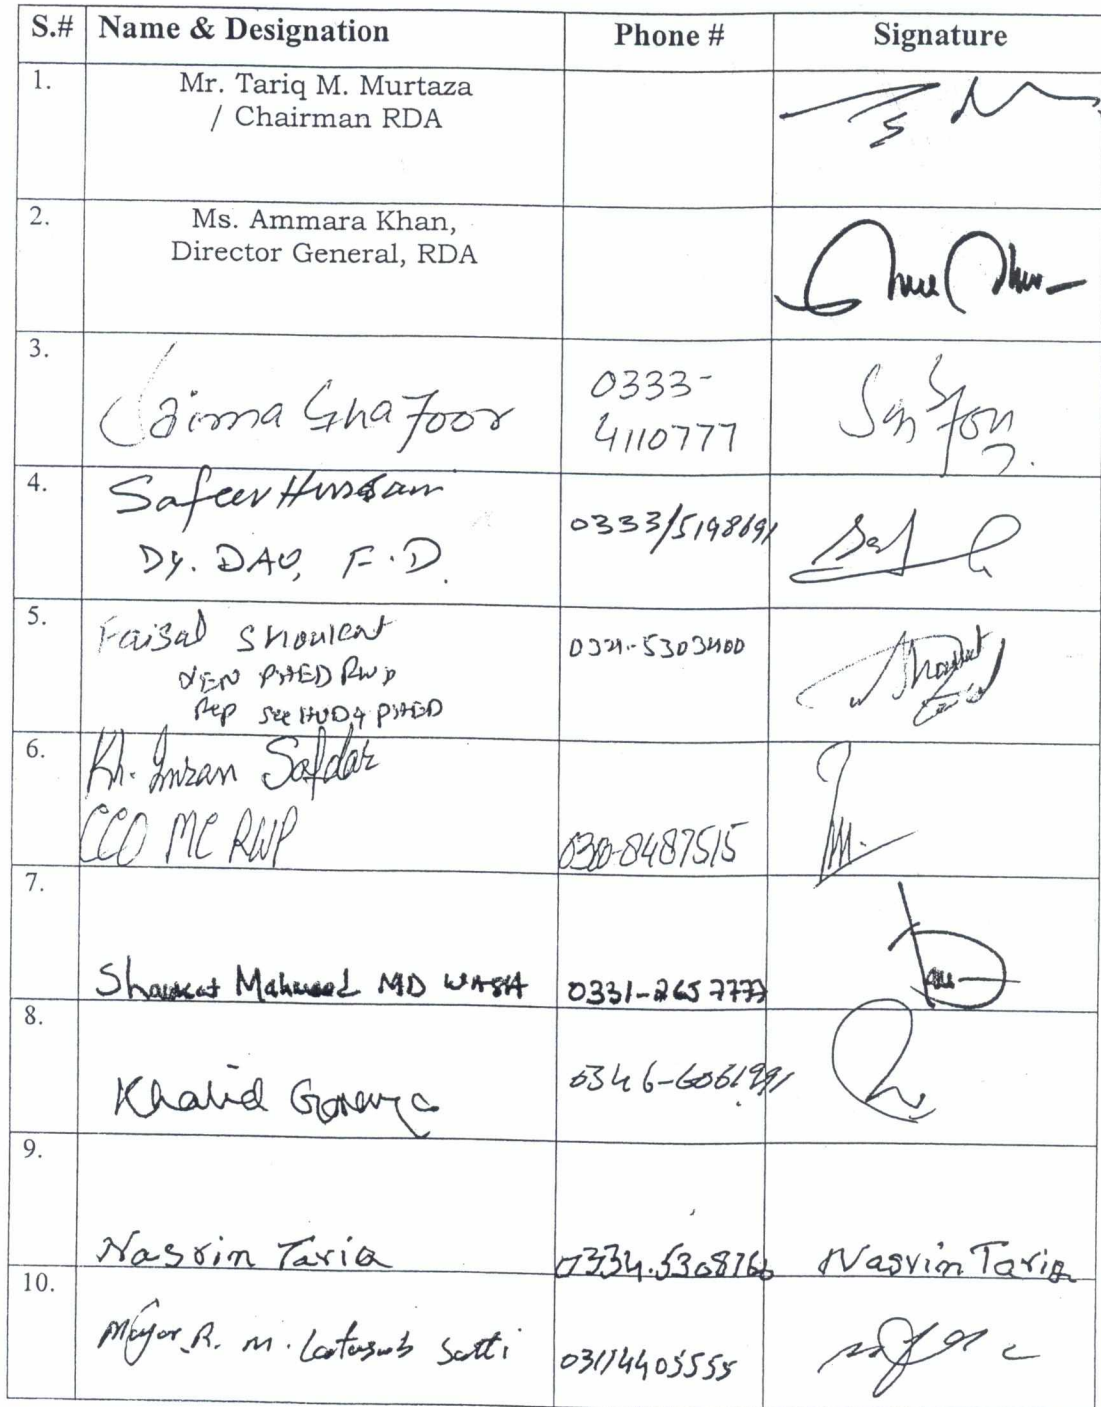 S.# Name & Designation Phone # Signature
1. Mr. Tariq M. Murtaza
/ Chairman RDA
2. Ms. Ammara Khan,
Director General, RDA
3. Saima Ghafoor 0333-
4110777
4. Safeer Hussain
Dy. DAO, F.D. 0333/5198691
5. Faisal Shoukat
XEN PHED RWP
Rep PHED
6. Kh. Imran Safdar
CCO MC RWP 0300-8487515
7. Shaukat Mahmood MD WASA 0331-2657777
8. Khalid
9. Nasrin Tariq 0334.5308766 Nasrin Tariq
10. Major R. M. Satti 03114405555